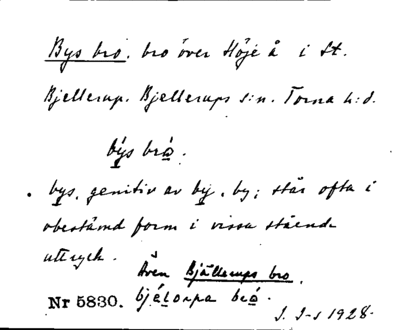 Bys bro. bro över Höje å i St.
Bjellerup. Bjellerups s:n. Torna h:d.
býs bro̲.
bys, genitiv av by, by; står ofta i
obestämd form i vissa stående
uttryck.
Även Bjällerups bro.
Nr 5830.
1928.